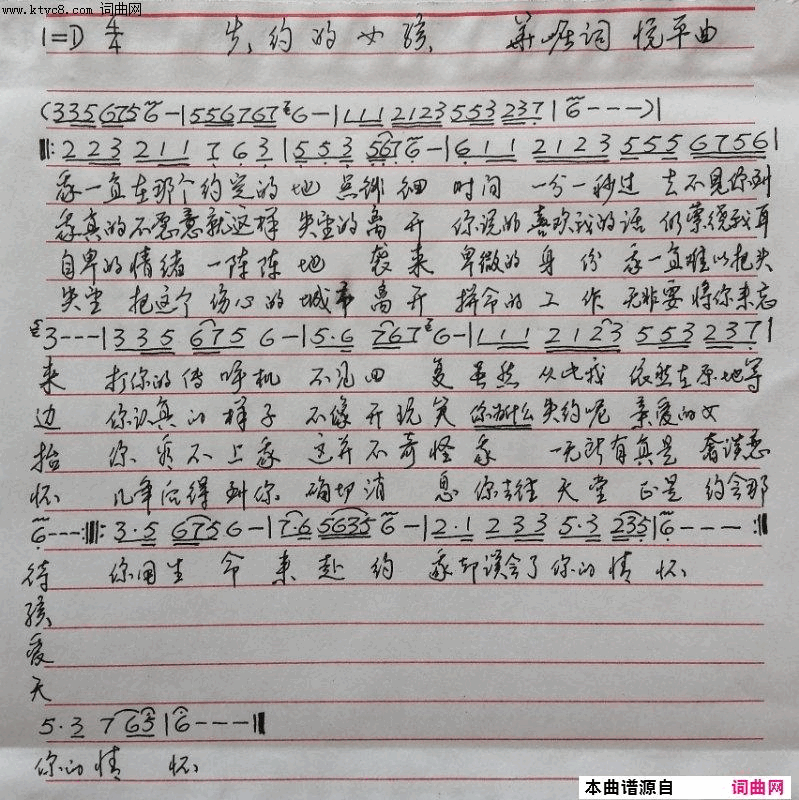 www.ktvc8.com 词曲网
1=D 4/4 失约的女孩 华崖词 悦平曲
(3 3 5 6 7 5 6 - | 5 5 6 7 6 7 6 - | 1 1 1 2 1 2 3 5 5 3 2 3 7 | 6 - - - ) |
‖: 2 2 3 2 1 1 7 6 3 | 5 5 3 5 6 7 6 - | 6 1 1 2 1 2 3 5 5 5 6 7 5 6 |
我一直在那个约定的地 点徘徊 时间 一分一秒过 去不见你到
我真的不愿意就这样 失望的离 开 你说的喜欢我的话 仍萦绕我耳
自卑的情绪 一阵阵地 袭来 卑微的身 份 我一直难以把头
失望 把这个 伤心的城市离开 拼命的工作 无非要将你来忘
3 - - - | 3 3 5 6 7 5 6 - | 5 · 6 7 6 7 6 - | 1 1 1 2 1 2 3 5 5 3 2 3 7 |
来 打你的传呼机 不见回 复 虽然 从此我 依然在原地等
边 你认真的样子 不像开玩笑 你为什么失约呢 亲爱的女
抬 你 看不上我 这并不奇怪我 一无所有真是 奢谈恋
怀 几年后得到你 确切消 息 你去往 天堂 正是 约会那
6 - - - :‖: 3 · 5 6 7 5 6 - | 7 · 6 5 6 3 5 6 - | 2 · 1 2 3 3 5 · 3 2 3 5 | 6 - - - :‖
待 你用生 命 来 赴 约 我却误会了你的情 怀
孩
爱
天
5 · 3 7 6 5 | 6 - - - ‖
你的情 怀
本曲谱源自 词曲网